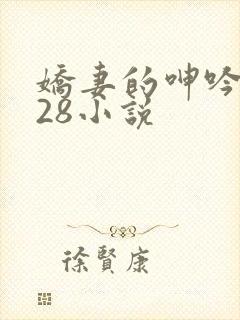 嬌妻的呻吟
28小說
徐賢康